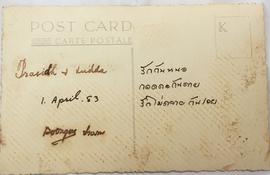 POST CARD
CARTE POSTALE
K
Prasidh & Ludda
1. April. 53
รักกันหนอ
กอดคอกันตาย
รักไม่คลาย กันเอย